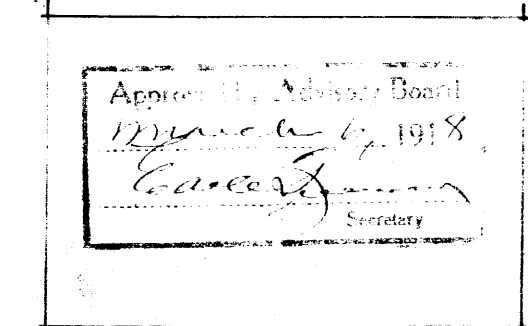 Approved by Advisory Board
March 6, 1918
Secretary